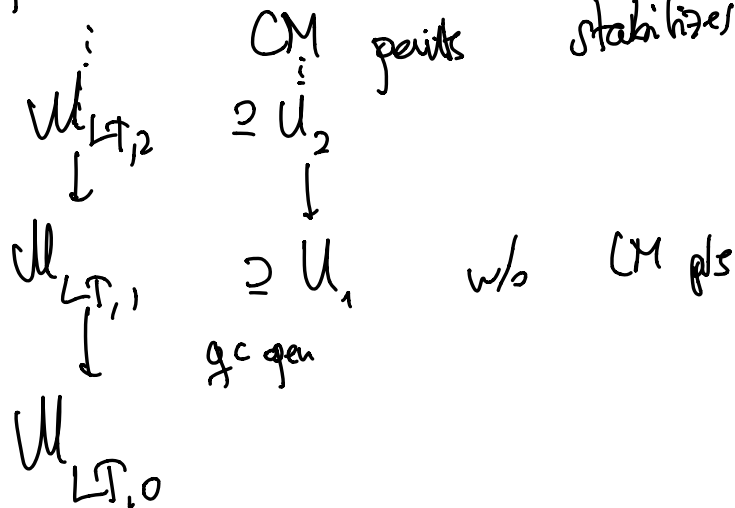 ⋮ CM points stabilizes
M_{LT,2} ⊇ U_2
↓ ↓
M_{LT,1} ⊇ U_1 w/o CM pts
↓ qc open
M_{LT,0}